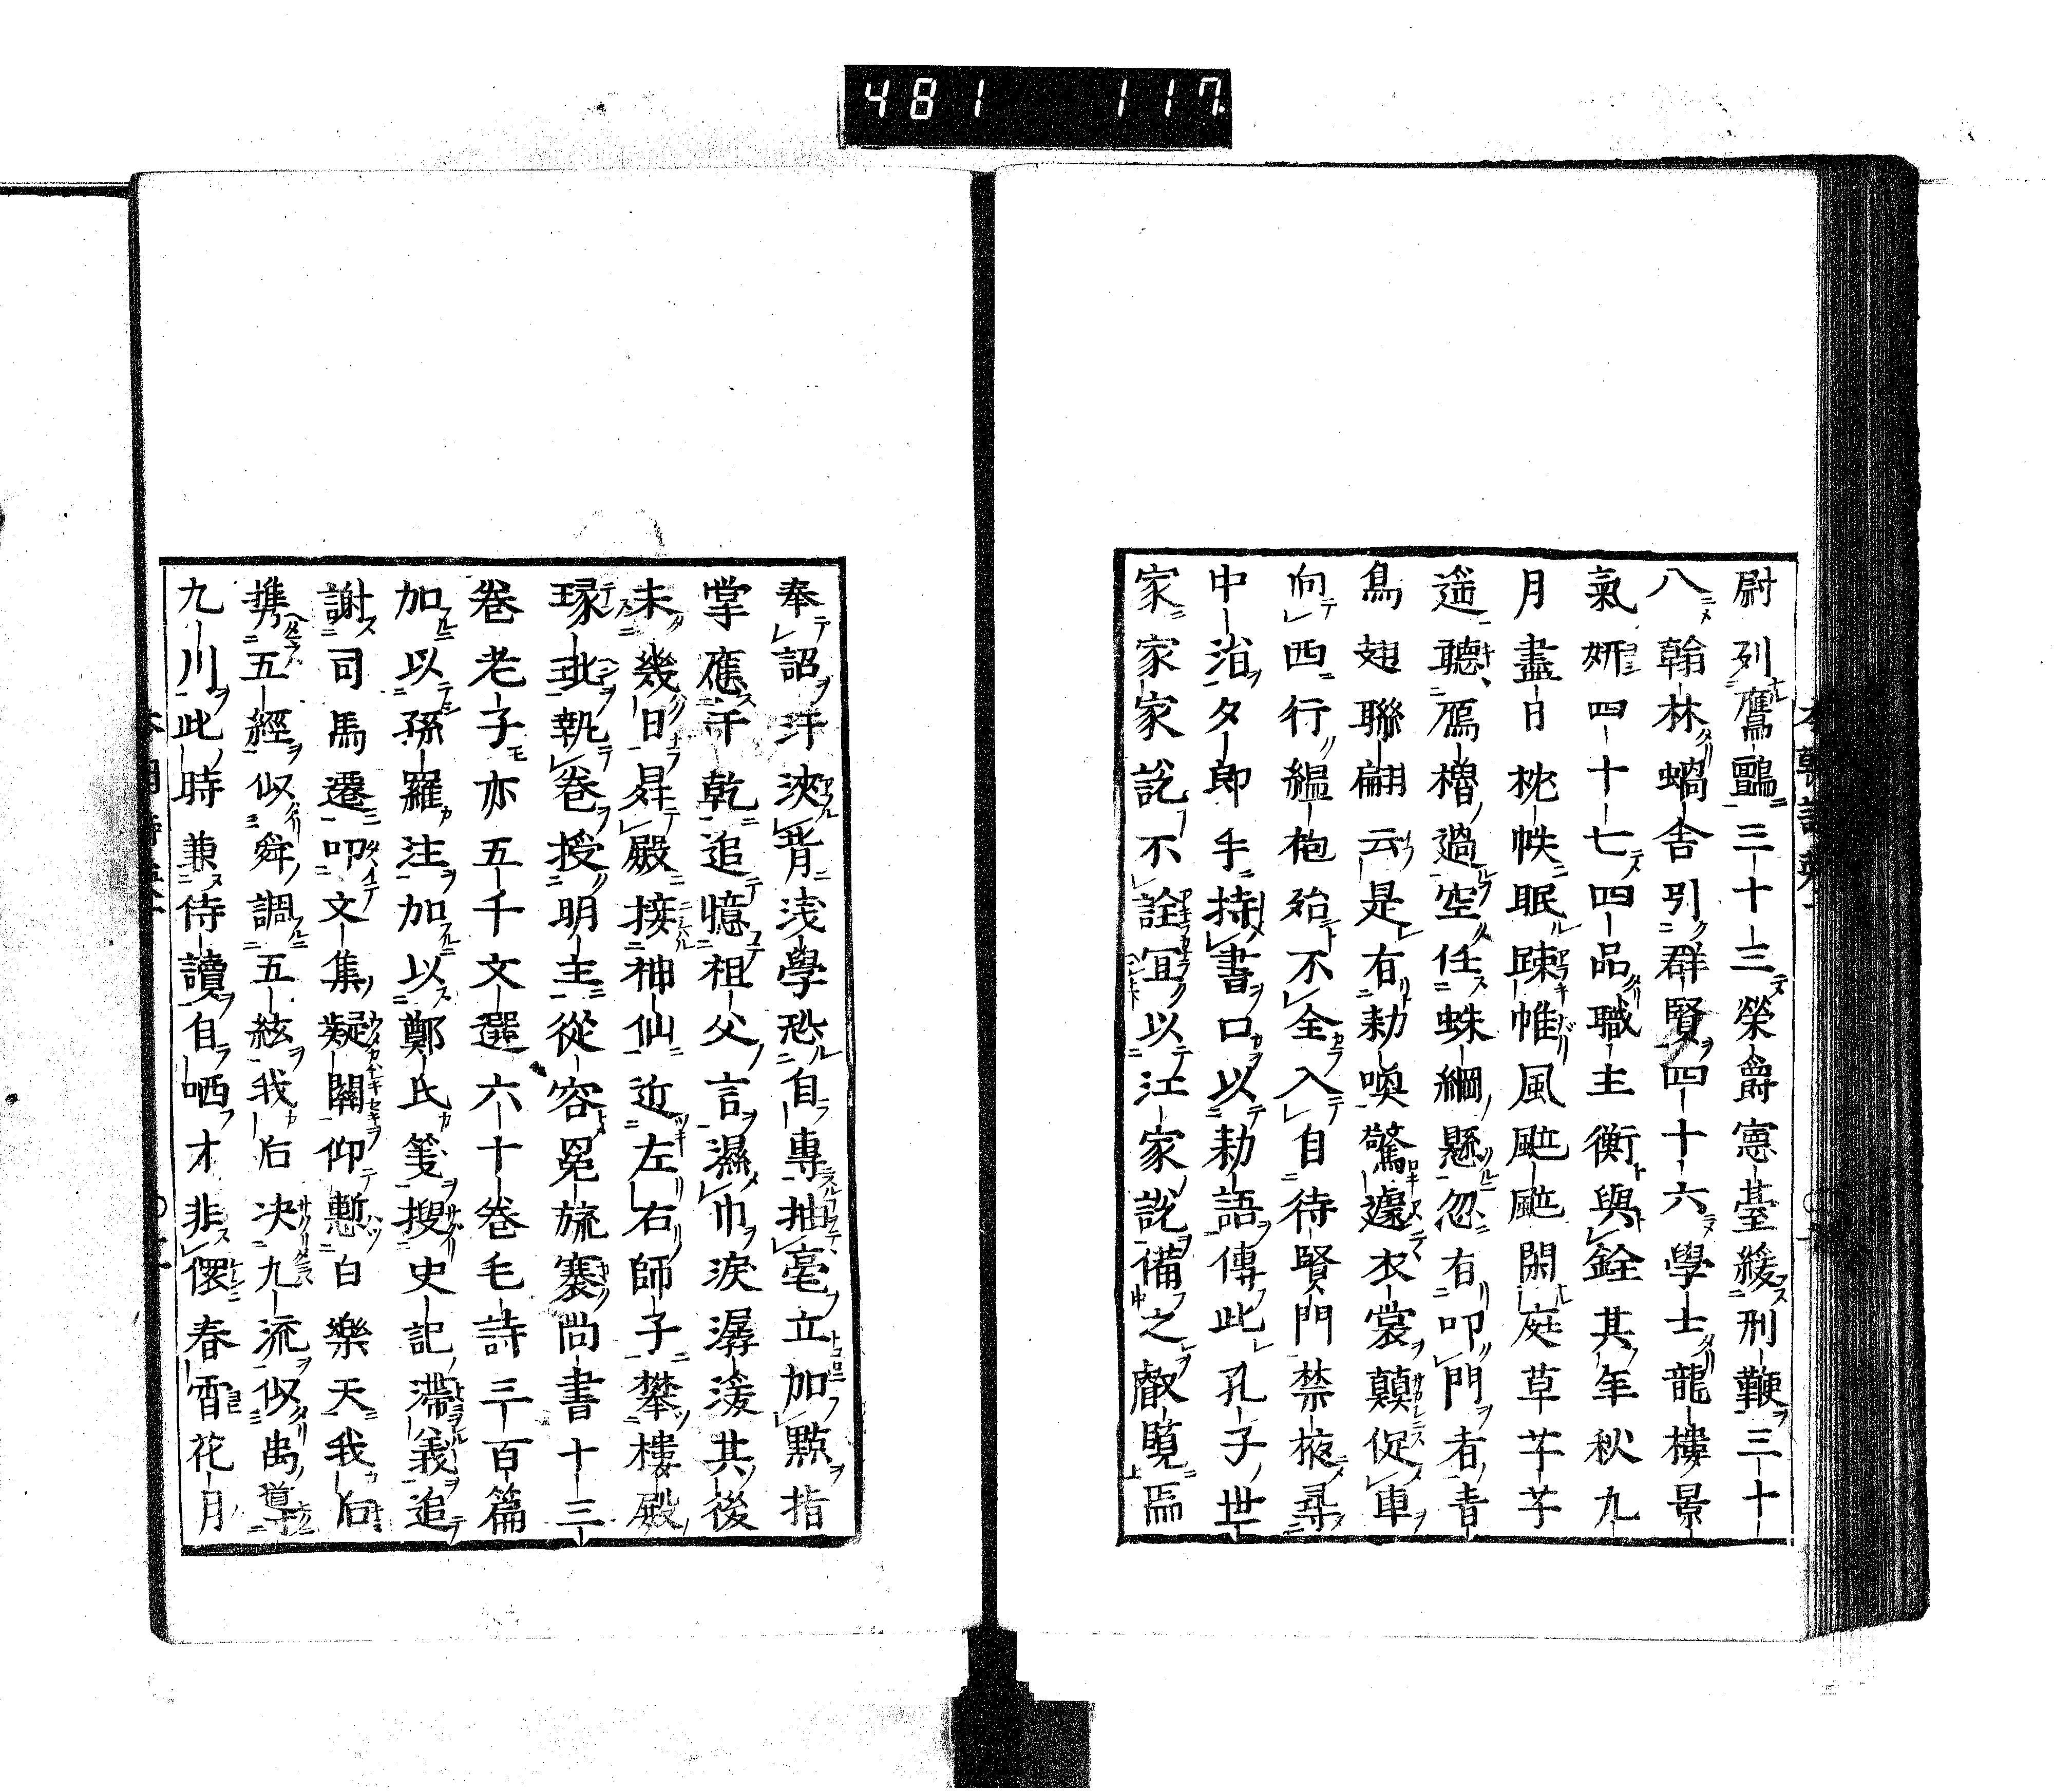 481 117
尉列鷹鸇三十三榮爵憲臺緩刑鞭三十
八翰林蝸舍引群賢四十六學士龍樓景
氣妍四十七四品職主衡與銓其年秋九
月盡日枕帙眠踈帷風颭颭閑庭草芊芊
遥聽鴈櫓過空任蛛綱懸忽有叩門者青
鳥翅聯翩云是有勅喚驚遽衣裳顛促車
向西行緼袍殆不全入自待賢門禁掖尋
中涓夕郎手持書口以勅語傳此孔子世
家家家説不詮宜以江家説備之叡覽焉
奉詔汗浹背淺學恐自專抽毫立加點指
掌應于乾追憶祖父言濕巾淚潺湲其後
未幾日昇殿接神仙近左右師子攀樓殿
琢玼執卷授明主從容冕旒褰尚書十三
卷老子亦五千文選六十卷毛詩三百篇
加以孫羅注加以鄭氏箋搜史記滯義追
謝司馬遷叩文集疑關仰慙白樂天我后
携五經似舜調五絃我后决九流似禹導
九川此時兼侍讀自哂才非儇春宵花月